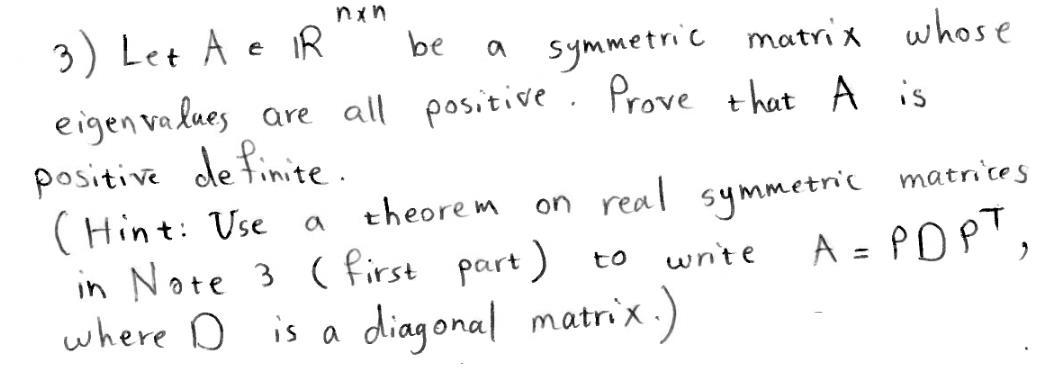 3) Let A ∈ ℝⁿˣⁿ be a symmetric matrix whose
eigenvalues are all positive. Prove that A is
positive definite.
(Hint: Use a theorem on real symmetric matrices
in Note 3 (first part) to write A = PDPᵀ,
where D is a diagonal matrix.)